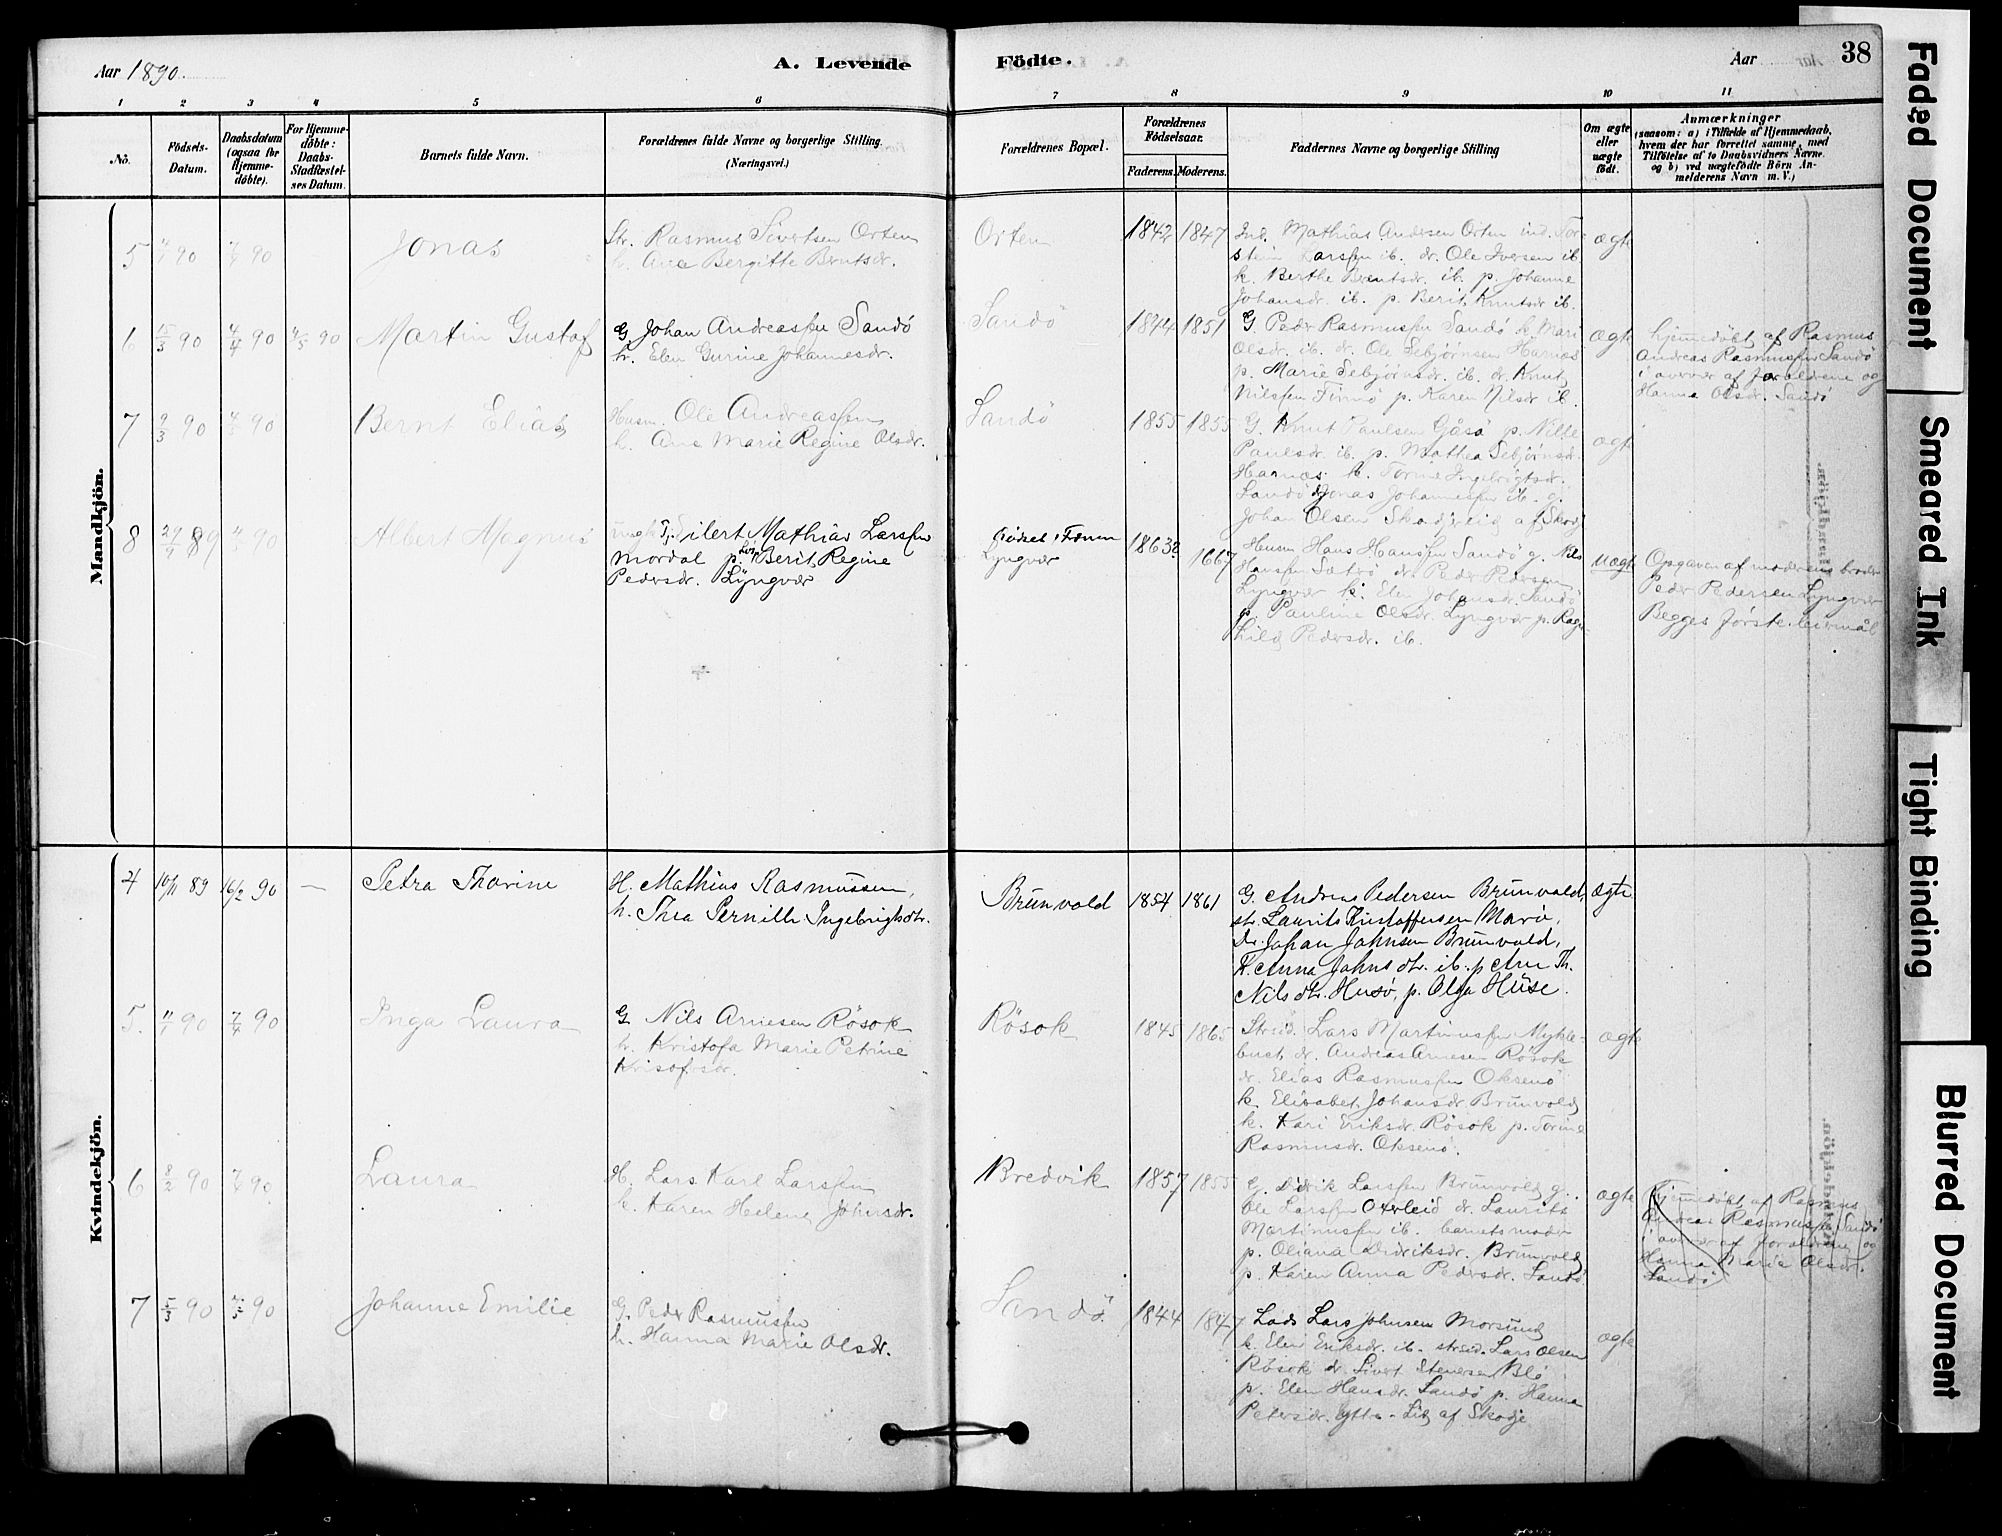 Aar 1890.
A. Levende
Födte.
Aar
38
1 2 3 4 5 6 7 8 9 10 11
No.
Födsels-
Datum.
Daabsdatum
(ogsaa for
Hjemme-
döbte).
For Hjemme-
döbte:
Daabs-
Stadfæstel-
ses Datum.
Barnets fulde Navn.
Forældrenes fulde Navne og borgerlige Stilling.
(Næringsvei.)
Forældrenes Bopæl.
Forældrenes
Födselsaar.
Faderens. Moderens.
Faddernes Navne og borgerlige Stilling
Om ægte
eller
uægte
födt.
Anmærkninger
(saasom: a) i Tilfælde af Hjemmedaab,
hvem der har forrettet samme, med
Tilföielse af to Daabsvidners Navne.
og b) ved uægtefödte Börn An-
melderens Navn m. V.)
Mandkjön.
5
90
90
Jonas
Str. Rasmus Sivertsen Orten
Ane Bergitte Berntsdr.
Orten
1842 1847
Ind. Mathias Andersen Orten ind. Tor-
stein Larssen ib. dr. Ole Iversen ib
k. Berthe Berntsdr. ib. p. Johanne
Johansdr. ib. p. Berit Knutsdr ib.
ægte
6
15/3 90
4/4 90
4/5 90
Martin Gustaf
G. Johan Andreassen Sandö
h. Elen Gurine Johannesdr.
Sandö
1844 1851
G. Peder Rasmussen Sandö k. Mari
Olsdr. ib. dr. Ole Sebjørnsen Harnæs
p. Marie Sebjørnsdr. ib. dr. Knut
Nilssen Finnö p. Karen Nilsdr ib.
ægte
hjemmedöbt af Rasmus
Andreas Rasmussen Sandö
i nærvær af forældrene og
Hanna Olsdr. Sandö
7
9/3 90
4/5 90
Bernt Elias
Husm. Ole Andreassen
h. Ane Marie Regine Olsdr.
Sandö
1855 1855
G. Knut Paulsen Gåsö p.
Paulsdr. ib. p. Mathea Sebjørnsdr.
Harnæs k. Torine Ingebrigtsdr.
Sandö Jonas Johannessen ib. g.
Johan Olsen af Skodj
ægte
8
89
90
Albert Magnus
ungk. Eilert Mathias Larssen
Mordal p. Berit Regine
Pedersdr. Lyngvær
Lyngvær
1863
1667
Husm. Hans Hanssen Sandö g. Nils
Hanssen Sætrö dr. Peder Pedersen
Lyngvær k. Elen Johansdr. Sandö
p. Pauline Olsdr. Lyngvær p. Ragn-
hild Pedersdr. ib.
uægte
Opgaven af moderens broder
Peder Pedersen Lyngvær
Begges første leiermål
Kvindekjön.
4
10/11 89
16/2 90
—
Petra Thorine
H. Mathias Rasmussen,
h. Thea Pernille Ingebrigtsdtr.
Brunvold
1854 1861
G. Andreas Pedersen Brunvold,
str. Laurits Kristoffersen Marö,
Dr. Johan Johnsen Brunvold,
K. Anna Johnsdtr. ib. p Ane Th.
Nilsdtr. Husö, p. Olga Huse.
ægte
5.
90
7/4 90
Inga Laura
G. Nils Arnesen Rösok
h. Kristofa Marie Petrine
Krisofrsdr.
Rösok
1845 1865
Lars Martinussen Mykle-
bust, dr. Andreas Arnesen Rösok
dr. Elias Rasmussen Oksenö
k. Elisabet Johansdr. Brunvold
k. Kari Eriksdr. Rösok p. Torine
Rasmusdr. Oksenö.
ægte
6
8/2 90
7/4 90
Laura
H. Lars Karl Larssen
h. Karen Helene Johnsdr.
Bredvik
1857 1855
G. Didrik Larssen Brunvold g.
Ole Larssen Oterleid dr. Laurits
Martinussen ib. barnets moder
p. Oliana Didriksdr. Brunvold
p. Karen Anna Pedersdr. Sandö
ægte
Hjemmedöbt af Rasmus
Andreas Rasmussen Sandö
i nærvær af forældrene og
Hanna Marie Olsdr.
Sandö
7
5/3 90
4/5 90
Johanne Emilie
G. Peder Rasmussen
h. Hanna Marie Olsdr.
Sandö
1844 1847
Lods Lars Johnsen Morsund
k. Elen Eriksdr. ib. Lars Olsen
Rösok dr. Sivert Stenersen Blö
p. Elen Hansdr. Sandö p. Hanna
Petersdr. Lid af Skodje
ægte
Faded Document
Smeared Ink
Tight Binding
Blurred Document